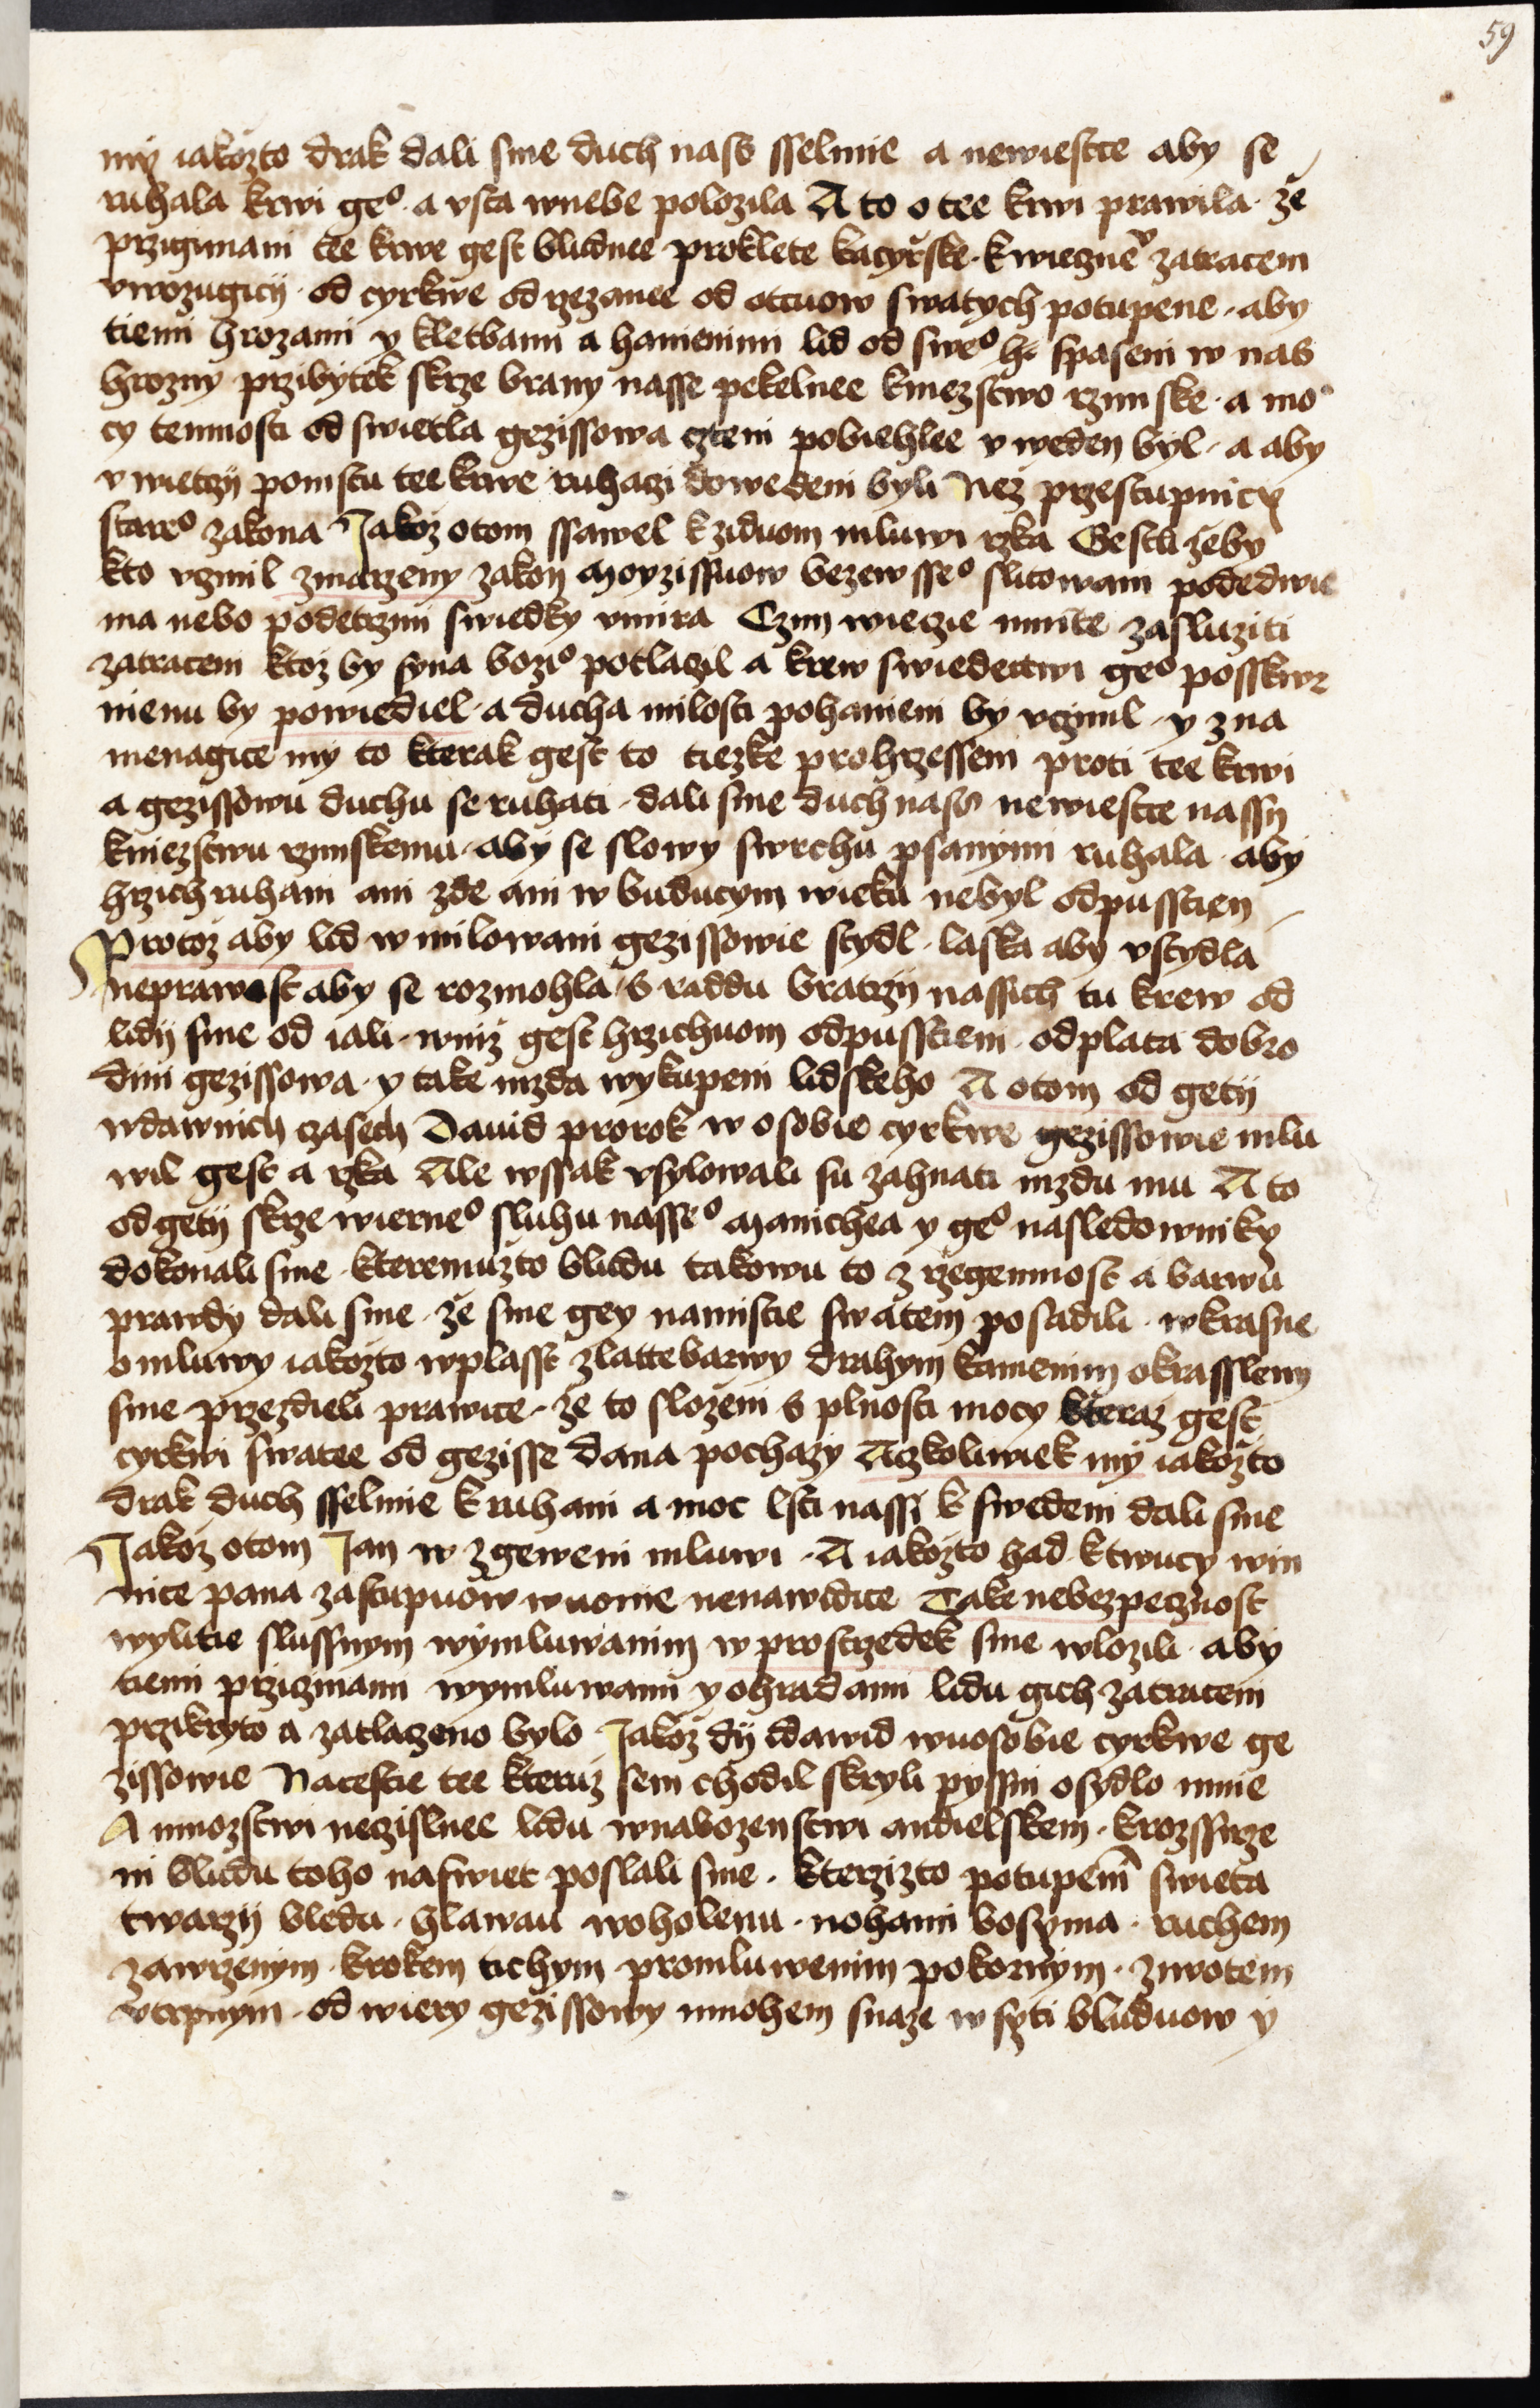 59
my iakozto drak dali sme duch nass sselmie a newiestce aby se
ruhala krwi geº a vsta wnebe polozila A to o tee krwi prawila ze
przigimani tee krwe gest bludnee proklete kacyrske k wieczne zatraceni
vwozugicij od cyrkwe odrzezanee od otcuow swatych potupene aby
tiemi hrozami y kletbami a hanienimi lid od sweº spaseni w nas
hrozny przibytek skrze brany nasse pekelnee kniezstwo rzimske a mo
cy temnosti od swietla gezissowa czteni pobiehlee vweden byl a aby
v wietczij pomstu tee krwe ruhaczi dowedeni byli Nez przestupnicy
stareº zakona Jakoz otom ssawel k ziduom mluwi rzka Gestli zeby
kto vczinil zmarzeny zakon Moyzissuow bezewsseº slitowani podedwie
ma nebo podetrzimi swiedky vmira Czim wieczie mnite zasluziti
zatraceni ktoz by syna boziº potlaczil a krew swiedectwi geº posskwr
nienu by powiediel a ducha milosti pohanieni by vczinil y zna
menagice my to kterak gest to tiezke prohrzesseni proti tee krwi
a gezissowu duchu se ruhati dali sme duch nass newiestce nassij
kniezstwu rzimskemu aby se slowy swrchu psanymi ruhala aby
hrzich ruhani ani zde ani w buducym wieku nebyl odpusstien
Protoz aby lid w milowani gezissowie stydl laska aby vstydla
neprawost aby se rozmohla s raddu bratrzij nassich tu krew od
lidij sme od iali wniz gest hrzichuom odpusstieni odplata dobro
dini gezissowa y take mzda wykupeni lidskeho A otom od getij
wdawnich czasech Dauid prorok w osobie cyrkwe gezissowie mlu
wil gest a rzka Ale wssak vsylowali su zahnati mzdu mu A to
odgetij skrze wierneº sluhu nasseº Manichea y geº nasledowniky
dokonali sme kteremuzto bludu takowu to zrzegemnost a barwu
prawdy dali sme ze sme gey namistie swatem posadili wkrasne
omluwy iakozto wplasst zlatte barwy drahym kamenim okrassleny
sme przezdieli prawice ze to slozeni s plnosti mocy kteraz gest
cyrkwi swatee od gezisse dana pochazy Aczkoliwiek my iakozto
drak duch sselmie k ruhani a moc lsti nassi k swedeni dali sme
Jakoz otom Jan w zgeweni mluwi A iakozto had ktwucy win
nice pana zastupuow wuonie nenawidice Take nebezpecznost
wylitie slussnym wymluwanim w prostrzedek sme wlozili aby
tiemi przicinami wymluwami y ohradami lidu gich zatraceni
przikryto a zatlaczeno bylo Jakoz dij dawid wuosobie cyrkwe ge
zissowie Nacestie tee kteruz sem chodil skryli pyssni osydlo mnie
A mnozstwi neczislnee lidu wnabozenstwi andielskem krozssirze
ni bludu toho naswiet poslali sme kterzizto potupeni swieta
twarzij bledu hlawau woholenu nohami bosyma ruchem
zawrzenym krokem tichym promluwenim pokornym ziwotem
vtrpnym od wiery gezissowy mnohem snaze w syti bluduow y